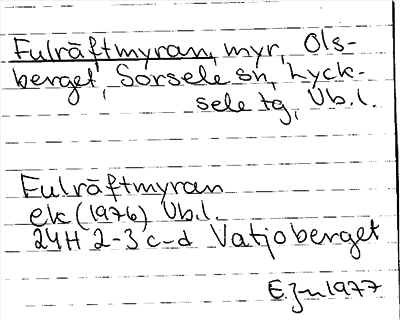 Fulräftmyran, myr, Ols-
berget, Sorsele sn, Lyck-
sele tg, Vb.l.
Fulräftmyran
ek (1976) Vb.l.
24H 2-3 c-d Vatjoberget
E. Jn 1977